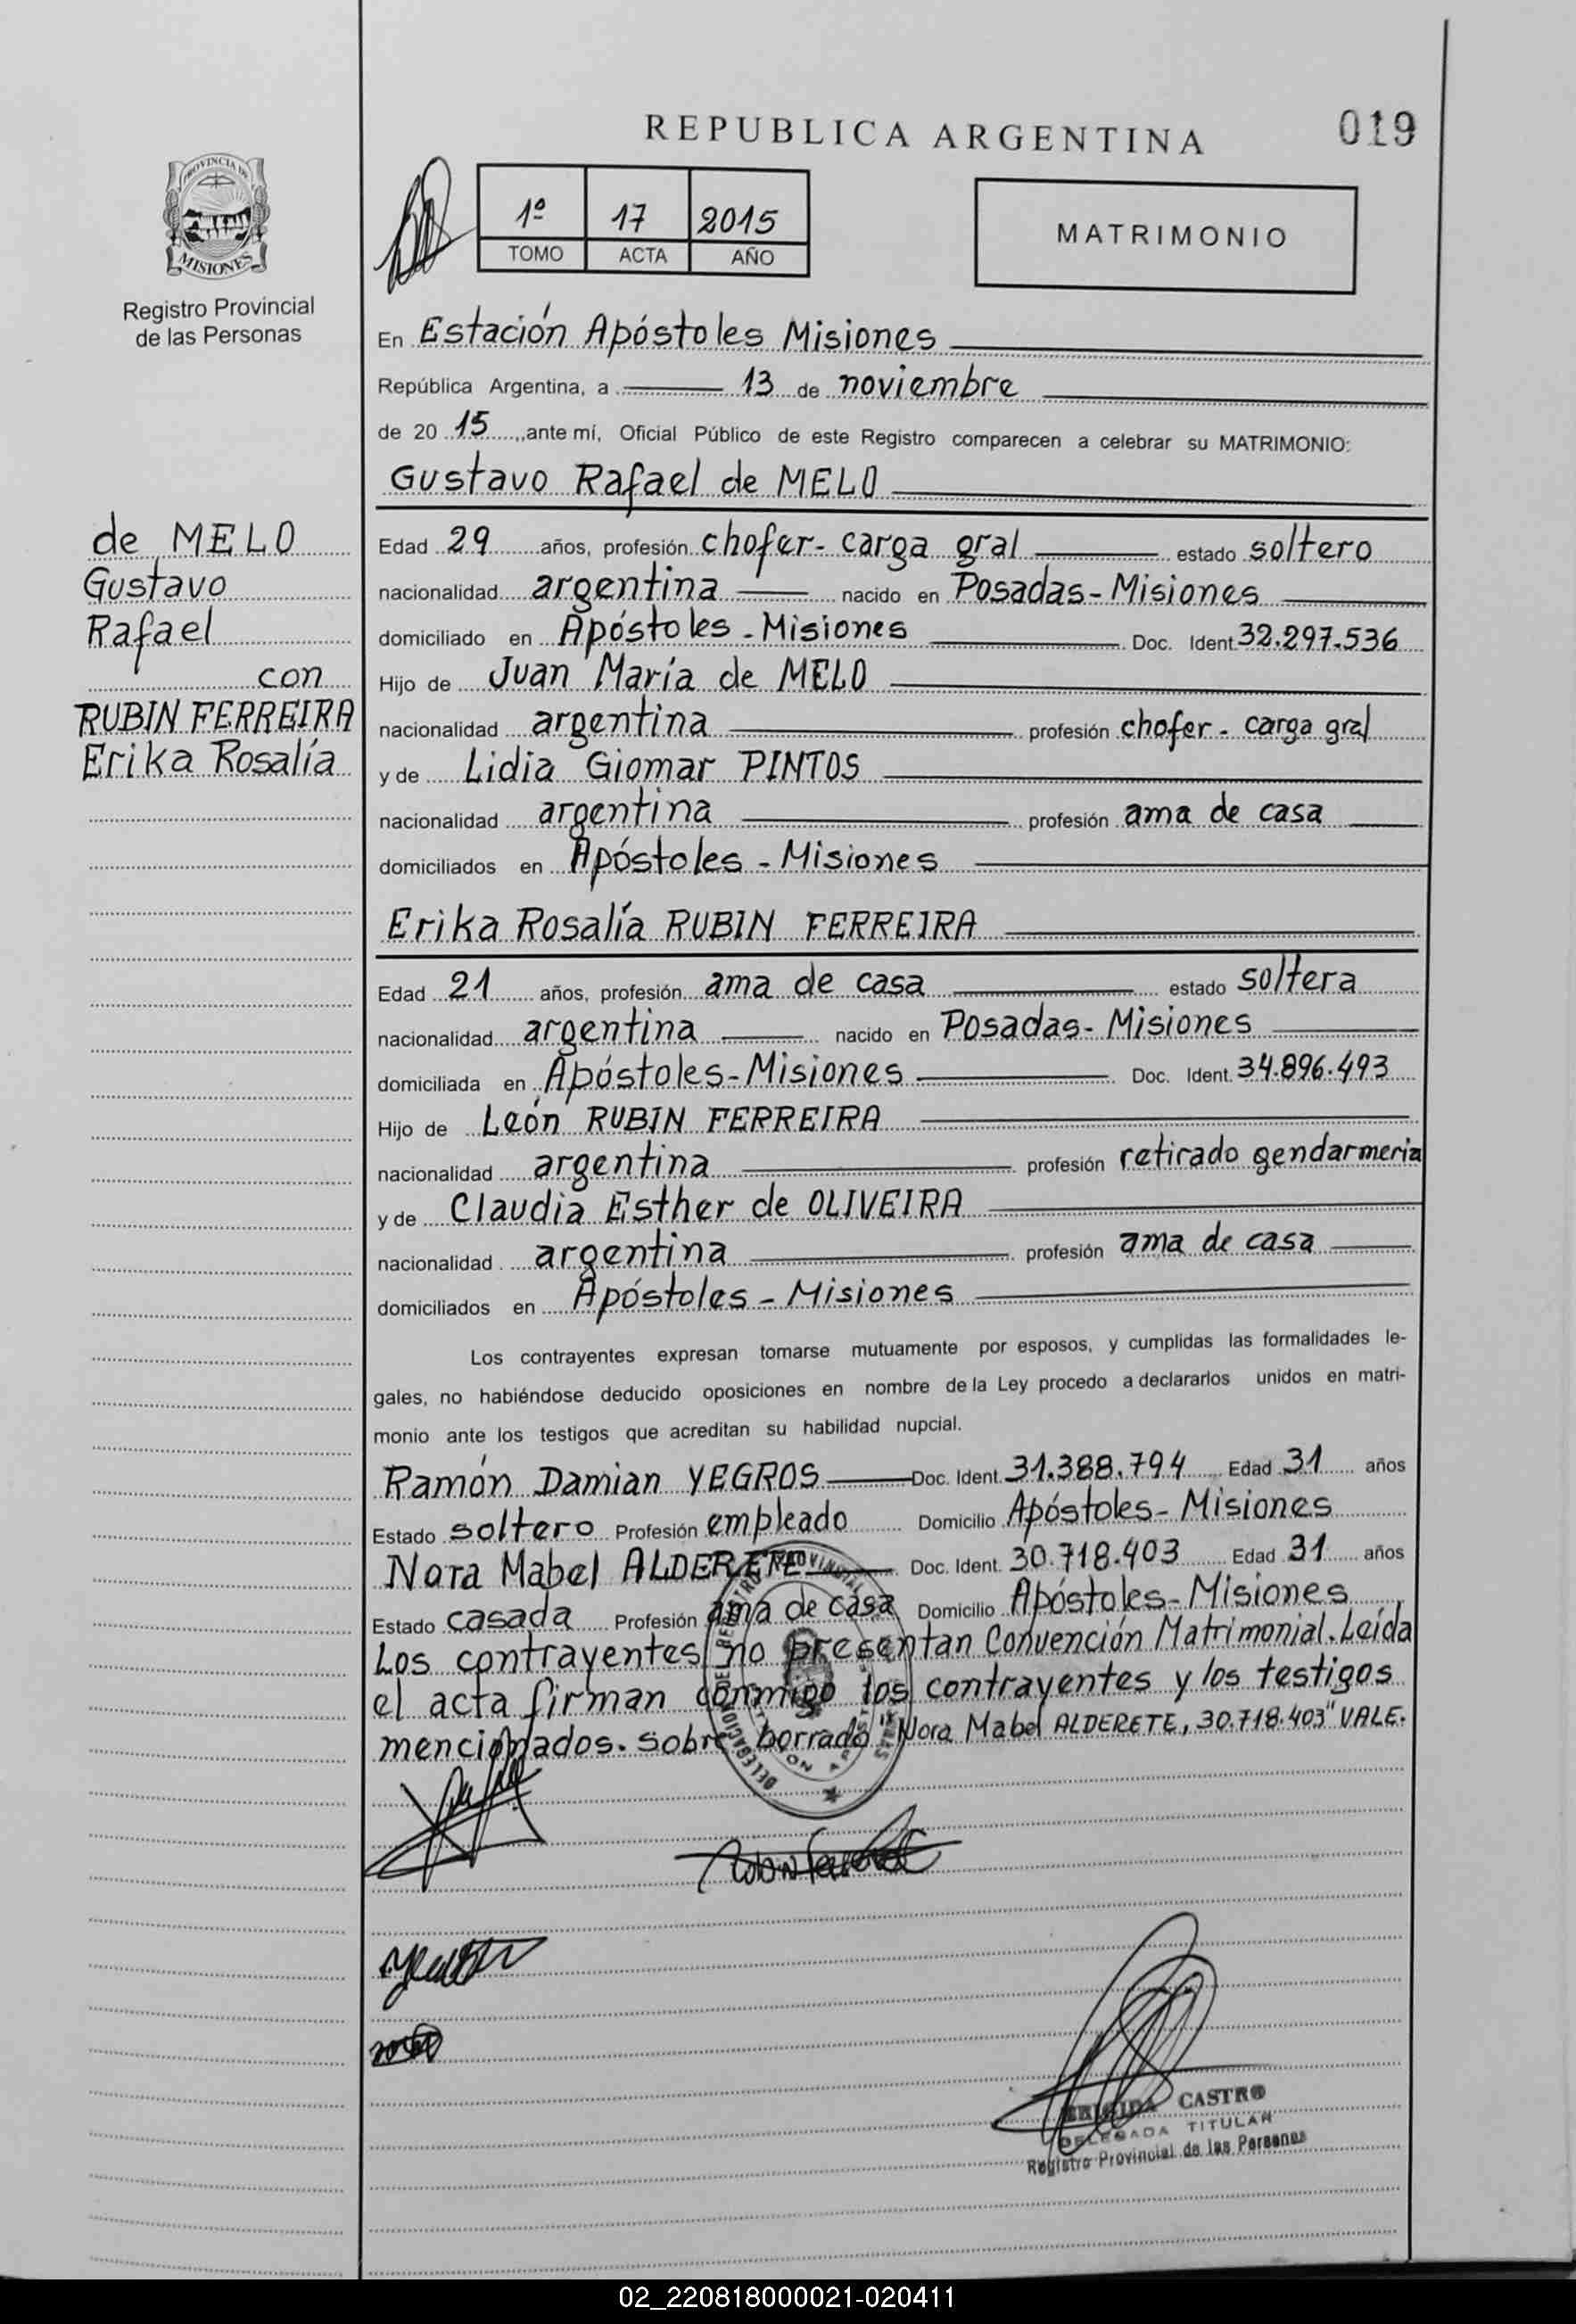 REPUBLICA ARGENTINA
019
PROVINCIA DE
MISIONES
Registro Provincial
de las Personas
1º 17 2015
TOMO ACTA AÑO
MATRIMONIO
En Estación Apóstoles Misiones
República Argentina, a 13 de noviembre
de 20 15, ante mí, Oficial Público de este Registro comparecen a celebrar su MATRIMONIO:
Gustavo Rafael de MELO
de MELO
Gustavo
Rafael
con
RUBIN FERREIRA
Erika Rosalía
Edad 29 años, profesión chofer - carga gral estado soltero
nacionalidad argentina nacido en Posadas - Misiones
domiciliado en Apóstoles - Misiones Doc. Ident. 32.297.536
Hijo de Juan María de MELO
nacionalidad argentina profesión chofer - carga gral
y de Lidia Giomar PINTOS
nacionalidad argentina profesión ama de casa
domiciliados en Apóstoles - Misiones
Erika Rosalía RUBIN FERREIRA
Edad 21 años, profesión ama de casa estado soltera
nacionalidad argentina nacido en Posadas - Misiones
domiciliada en Apóstoles - Misiones Doc. Ident. 34.896.493
Hijo de León RUBIN FERREIRA
nacionalidad argentina profesión retirado gendarmeria
y de Claudia Esther de OLIVEIRA
nacionalidad argentina profesión ama de casa
domiciliados en Apóstoles - Misiones
Los contrayentes expresan tomarse mutuamente por esposos, y cumplidas las formalidades le-
gales, no habiéndose deducido oposiciones en nombre de la Ley procedo a declararlos unidos en matri-
monio ante los testigos que acreditan su habilidad nupcial.
Ramón Damian YEGROS Doc. Ident. 31.388.794 Edad 31 años
Estado soltero Profesión empleado Domicilio Apóstoles - Misiones
Nora Mabel ALDERETE Doc. Ident. 30.718.403 Edad 31 años
Estado casada Profesión ama de casa Domicilio Apóstoles - Misiones
Los contrayentes no presentan Convención Matrimonial. Leída
el acta firman conmigo los contrayentes y los testigos
mencionados. Sobre borrado "Nora Mabel ALDERETE, 30.718.403" VALE.
DELEGACION DEL REGISTRO PROVINCIAL
BRIGIDA CASTRO
DELEGADA TITULAR
Registro Provincial de las Personas
02_220818000021-020411